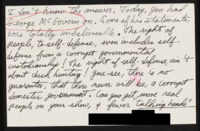 I don't know the answer. Today, you had
George McGovern on. Some of his statements
were totally unbelievable. The right of
people, to self-defense, even includes self-
defense from a corrupt government
custodianship! The right of self-defense, ain't
about duck hunting! You see, there is no
guarantee, that there never will be a corrupt
domestic government. Can you get more real
people on your show, & fewer "talking heads"